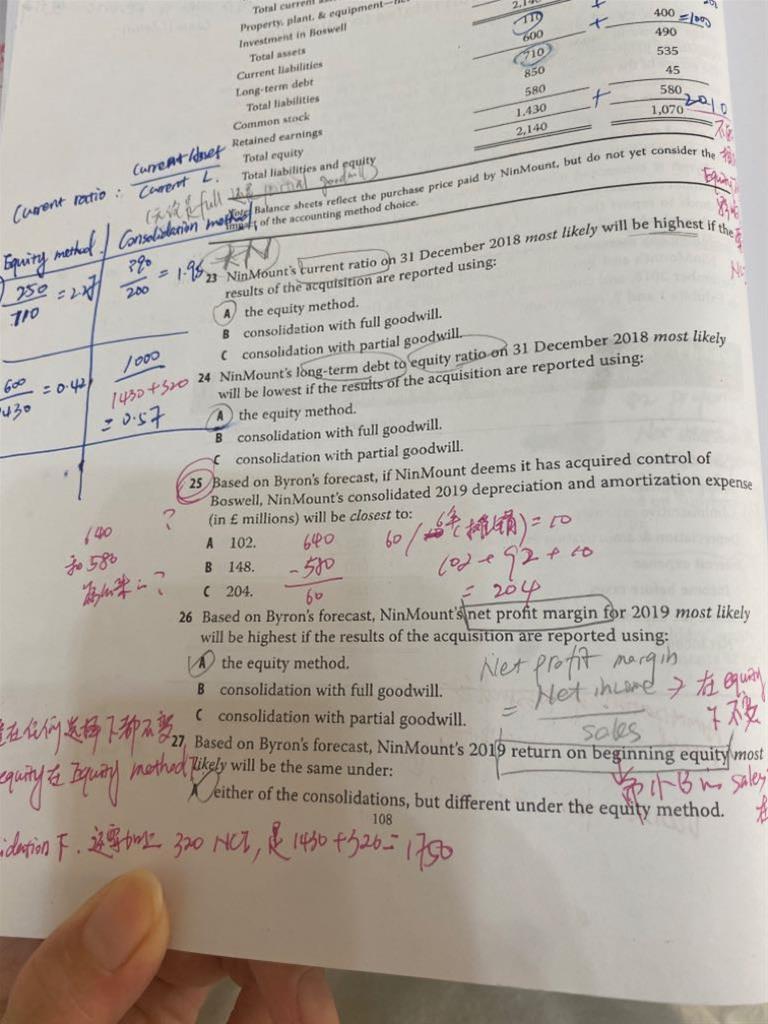 Total current
Property, plant, & equipment—
Investment in Boswell
Total assets
Current liabilities
Long-term debt
Total liabilities
Common stock
Retained earnings
Total equity
Total liabilities and equity
110 + 400 =1000
600 490
710 535
850 45
580 + 580 2010
1,430 1,070
2,140
Current ratio : Current Asset
Current L.
Note: Balance sheets reflect the purchase price paid by NinMount, but do not yet consider the
of the accounting method choice.
Equity method. Consolidation method
250/110 = 2.27
390/200 = 1.95
23 NinMount's current ratio on 31 December 2018 most likely will be highest if the
results of the acquisition are reported using:
A the equity method.
B consolidation with full goodwill.
C consolidation with partial goodwill.
600/1430 = 0.42
1000
1430+320
= 0.57
24 NinMount's long-term debt to equity ratio on 31 December 2018 most likely
will be lowest if the results of the acquisition are reported using:
A the equity method.
B consolidation with full goodwill.
C consolidation with partial goodwill.
25 Based on Byron's forecast, if NinMount deems it has acquired control of
Boswell, NinMount's consolidated 2019 depreciation and amortization expense
(in £ millions) will be closest to:
A 102.
B 148.
C 204.
640
和 580
?
640
-580
60
60/ (摊销) = 10
102 + 92 + 10
= 204
26 Based on Byron's forecast, NinMount's net profit margin for 2019 most likely
will be highest if the results of the acquisition are reported using:
A the equity method.
B consolidation with full goodwill.
C consolidation with partial goodwill.
Net profit margin
= Net income
sales
→ 在 equity
下不变
27 Based on Byron's forecast, NinMount's 2019 return on beginning equity most
likely will be the same under:
A either of the consolidations, but different under the equity method.
在任何选择下都不变
equity在 Equity method
108
下. 还要加上 320 NCI, 是 1430+320= 1750